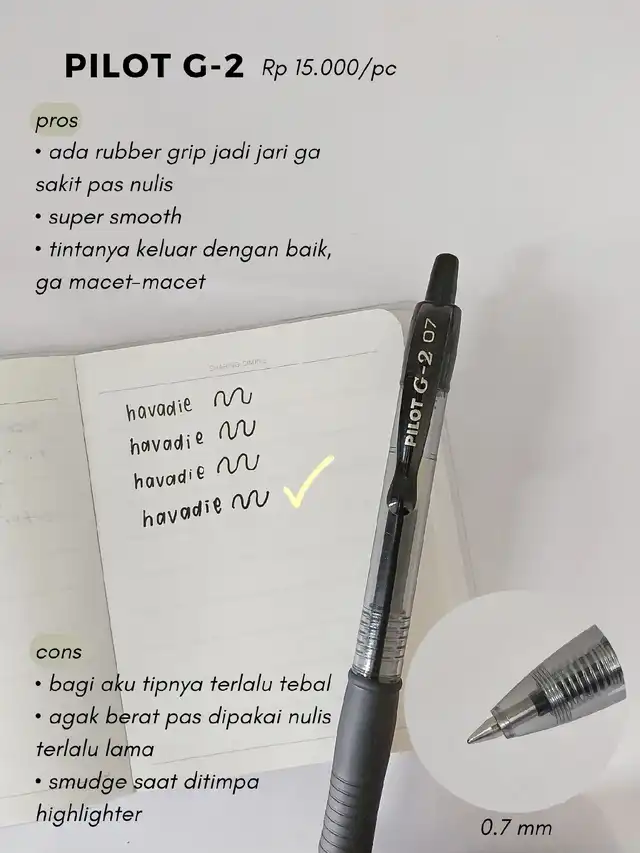 PILOT G-2 Rp 15.000/pc
pros
• ada rubber grip jadi jari ga
sakit pas nulis
• super smooth
• tintanya keluar dengan baik,
ga macet-macet
PILOT G-2 07
havadie
havadie
havadie
havadie
cons
• bagi aku tipnya terlalu tebal
• agak berat pas dipakai nulis
terlalu lama
• smudge saat ditimpa
highlighter
0.7 mm